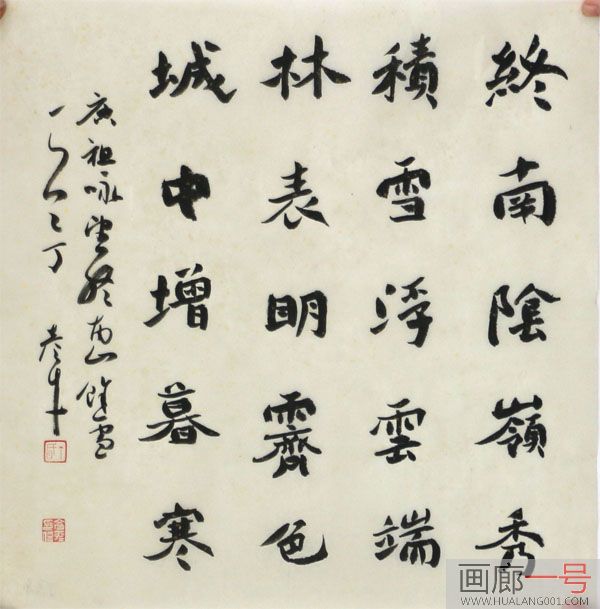 終南陰嶺秀
積雪浮雲端
林表明霽色
城中增暮寒
唐祖咏望终南山馀雪
画廊一号
WWW.HUALANG001.COM